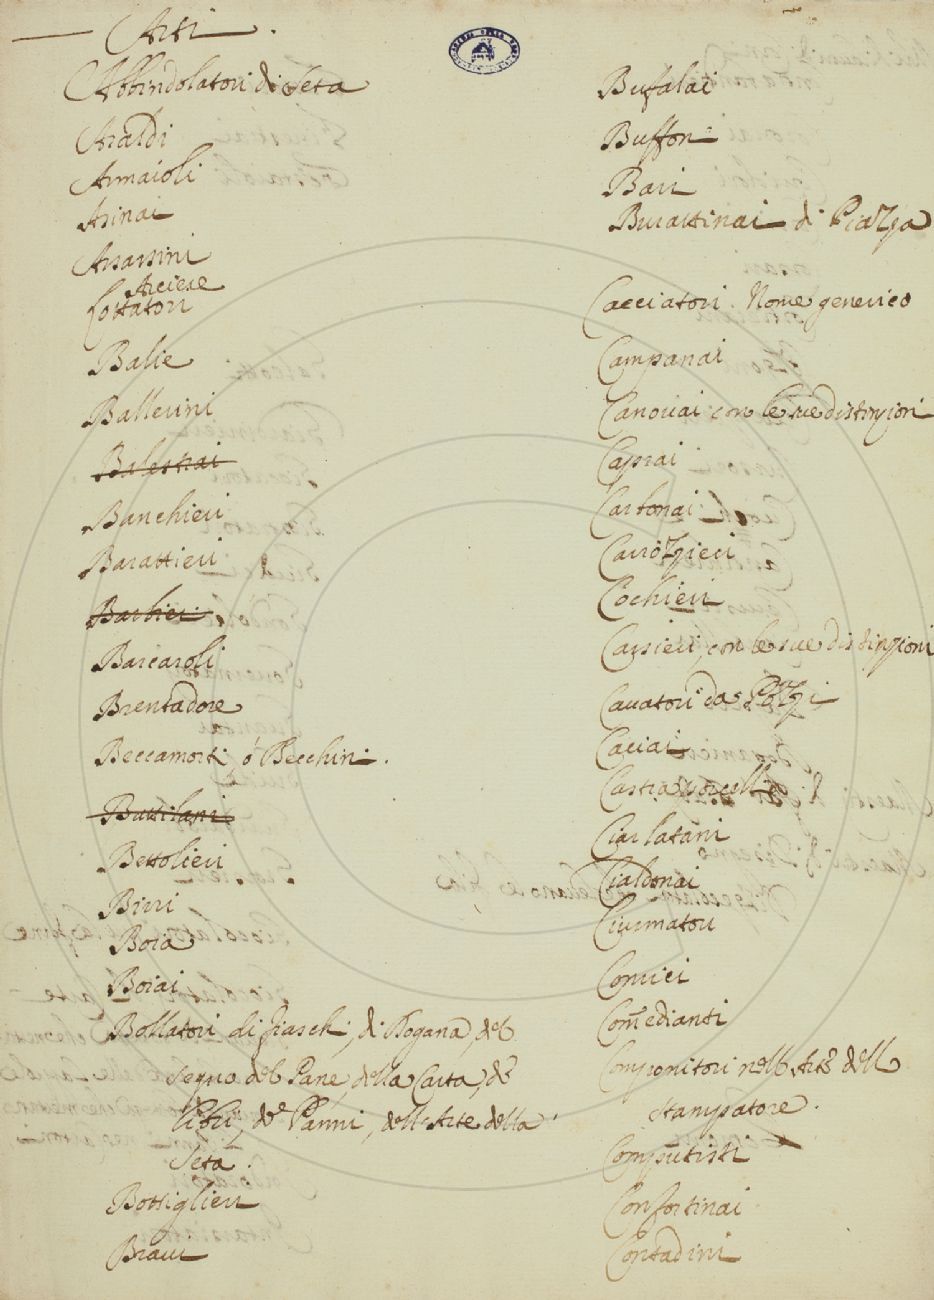 Arti.
Abbindolatori di Seta
Araldi
Armaioli
Asinai
Assassini
Arciere
Balie
Ballerini
Balestrai
Banchieri
Barattieri
Barbieri
Barcaroli
Brentadore
Beccamorti, ó Becchini.
Battilani
Bettolieri
Birri
Boia
Boiai
Bollatori di fiaschi, di Dogana, del
Segno del Pane, della Carta, de
libri, de Panni, dell'Arte della
Seta.
Bottiglieri
Bravi
Bufalai
Buffoni
Bari
Burattinai di Piazza
Cacciatori. Nome generico
Campanai
Canovai con le sue distinzioni
Caprai
Cartonai
Carrozzieri
Cochieri
Cassieri, con le sue distinzioni
Cavatori da Pozzi
Caciai
Castraporcelli
Ciarlatani
Cialdonai
Ciurmatori
Comici
Comedianti
Componitori nell'Arte dell
stampatore.
Computisti
Confortinai
Contadini